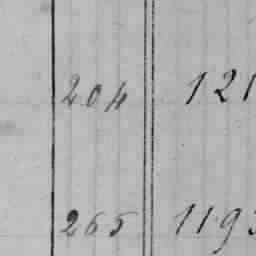 204 121
265 119